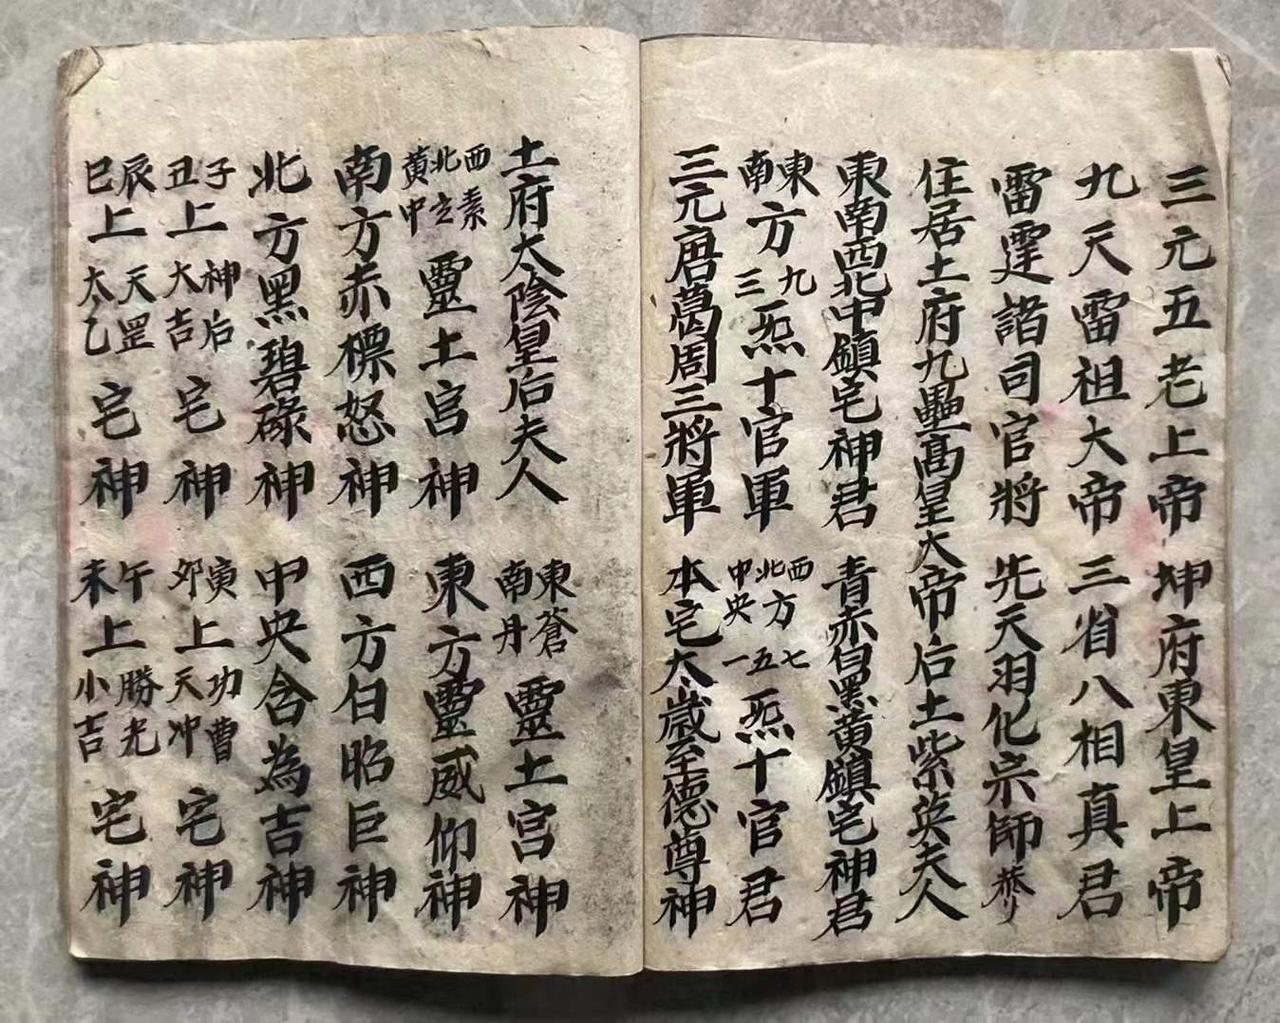 三元五老上帝 坤府東皇上帝
九天雷祖大帝 三省八相真君
雷霆諸司官將 先天羽化宗師
住居土府九壘高皇大帝后土紫英夫人
東南西北中鎮宅神君 青赤白黑黃鎮宅神君
東南方九三炁十官軍 西北中央方七五一炁十官君
三元唐葛周三將軍 本宅太歲至德尊神
土府太陰皇后夫人 東蒼南丹靈土宮神
西素北玄黃中靈土宮神 東方靈威仰神
南方赤標怒神 西方白昭巨神
北方黑碧碌神 中央含為吉神
子丑上神后大吉宅神 寅卯上功曹天冲宅神
辰巳上天罡太乙宅神 午未上勝光小吉宅神